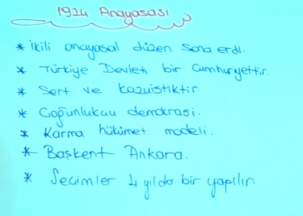 1924 Anayasası
* İkili anayasal düzen sona erdi.
* Türkiye Devleti bir Cumhuriyettir.
* Sert ve kazuistiktir
* Çoğunlukçu demokrasi.
* Karma hükümet modeli.
* Başkent Ankara.
* Seçimler 4 yılda bir yapılır.